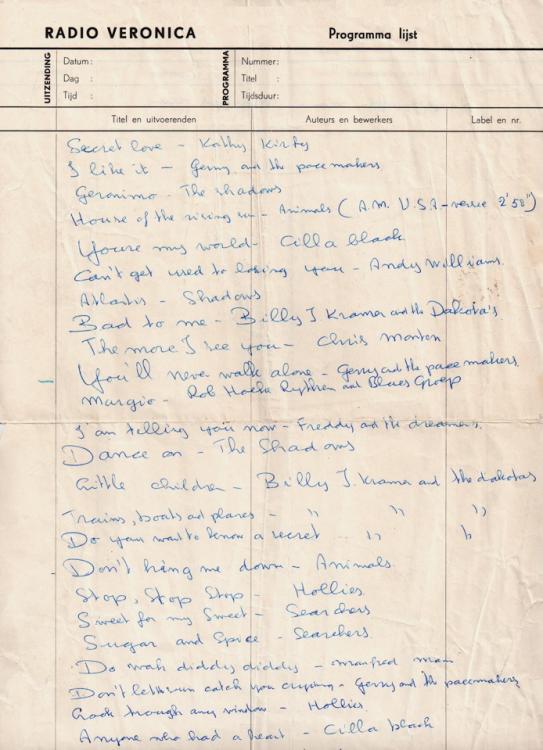 RADIO VERONICA Programma lijst
UITZENDING
Datum :
Dag :
Tijd :
PROGRAMMA
Nummer:
Titel :
Tijdsduur:
Titel en uitvoerenden Auteurs en bewerkers Label en nr.
Secret love - Kathy Kirby
I like it - Gerry and the pacemakers
Geronimo - The shadows
House of the rising sun - Animals (A.M. U.S.A - versie 2'58")
You're my world - Cilla black
Can't get used to losing you - Andy Williams.
Atlantis - Shadows
Bad to me - Billy J Kramer and the Dakota's
The more I see you - Chris Monten
You'll never walk alone - Gerry and the pacemakers
Margio - Rob Hoeke Rythem and Blues Groep
I am telling you now - Freddy and the dreamers.
Dance on - The Shadows
Little children - Billy J. Kramer and the dakotas
Trains, boats and planes - " " "
Do you want to know a secret " "
Don't bring me down - Animals.
Stop, Stop Stop - Hollies
Sweet for my Sweet - Searchers
Sugar and Spice - Searchers.
Do wah diddy diddy - manfred man
Don't let the sun catch you crying - Gerry and the pacemakers
Look trough any window - Hollies.
Anyone who had a heart - Cilla black